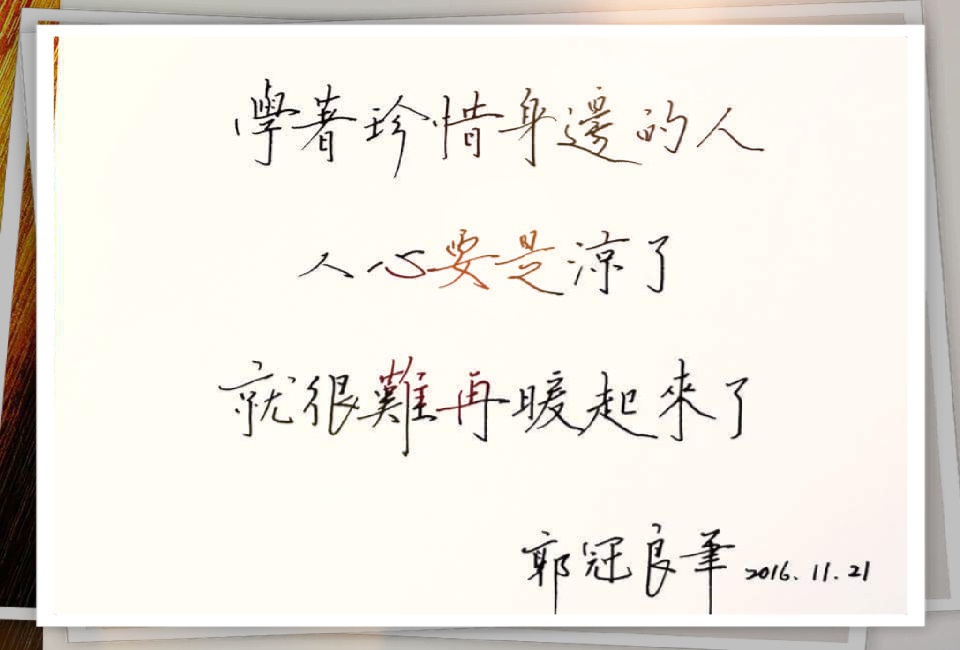 學著珍惜身邊的人
人心要是涼了
就很難再暖起來了
郭冠良筆 2016.11.21